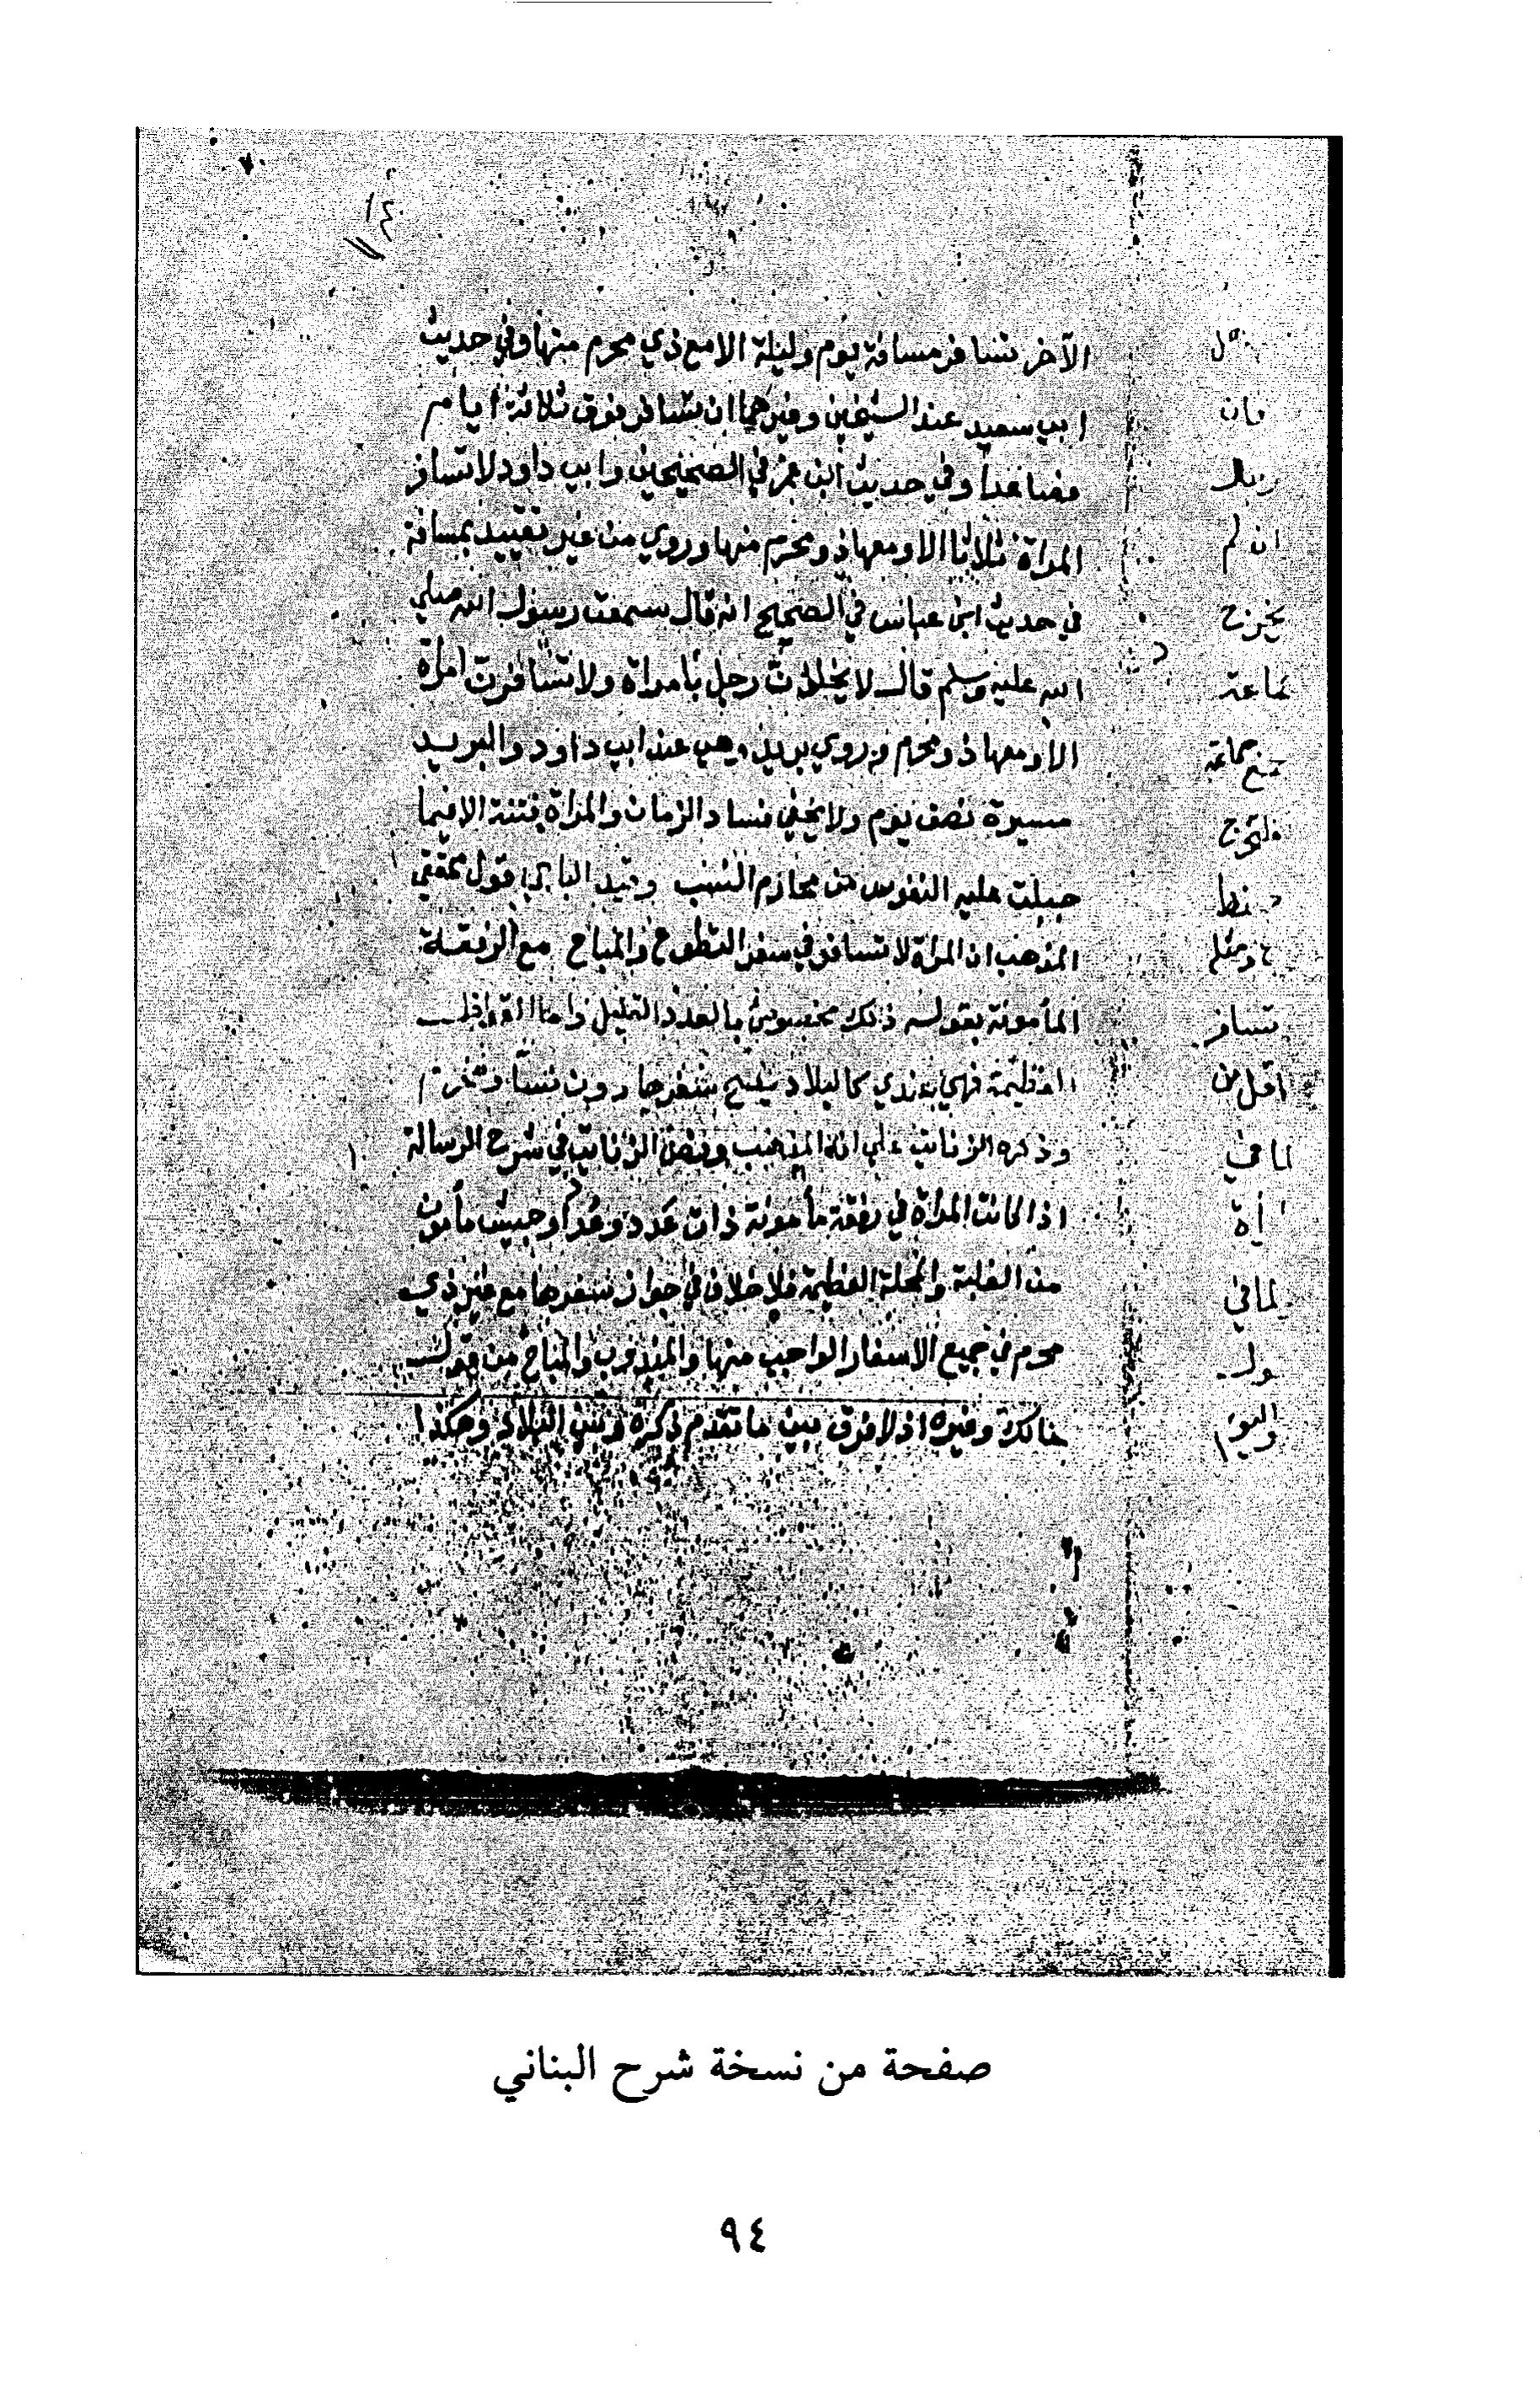 ١٤
الآخر تسافر مسافة يوم وليلة الا مع ذي محرم منها وفي حديث
ابي سعيد عند الشيخين وغيرهما ان تسافر فوق ثلاثة ايام
فصاعدا وفي حديث ابن عمر في الصحيحين وابي داود لا تسافر
المراة ثلاثا الا ومعها ذو محرم منها وروي من غير تقييد بمسافة
في حديث ابن عباس في الصحيح انه قال سمعت رسول الله صلى
الله عليه وسلم قال لا يخلون رجل بامراة ولا تسافرن امراة
الا ومعها ذو محرم وروي بريد وهي عند ابي داود والبريد
مسيرة نصف يوم ولا يخفى فساد الزمان والمراة فتنة الا فيما
جبلت عليه النفوس من محارم النسب وقيد الباجي قول محققي
المذهب ان المراة لا تسافر في سفر التطوع والمباح مع الرفقة
المأمونة بقوله ذلك مخصوص بالعدد القليل واما القوافل
العظيمة فهي عندي كالبلاد يصح سفرها دون نساء و
وذكره الزناتي على انه المذهب ونص الزناتي في شرح الرسالة
اذا كانت المراة في رفقة مأمونة ذات عدد وعدد او جيش مأمون
من الغلبة والمحلة العظيمة فلا خلاف في جواز سفرها مع غير ذي
محرم في جميع الاسفار الواجب منها والمندوب والمباح من قول
مالك وغيره اذ لا فرق بين ما تقدم ذكره وبين البلاد وهكذا
ان لم
يخرج
تسافر
اقل من
صفحة من نسخة شرح البناني
٩٤